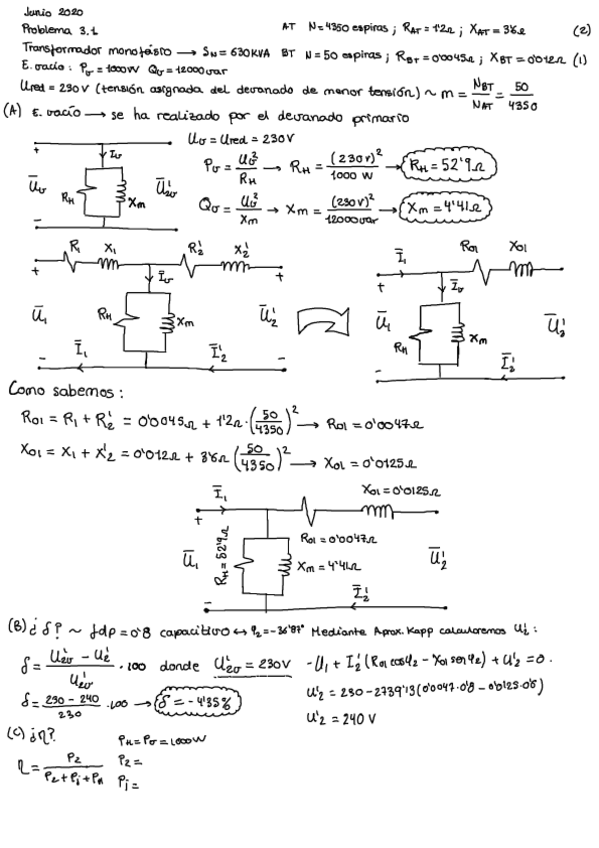 Junio 2020
Problema 3.1 AT N=4350 espiras; R_AT=1'2Ω; X_AT=3'6Ω (2)
Transformador monofásico → S_N=630KVA BT N=50 espiras; R_BT=0'0045Ω; X_BT=0'012Ω (1)
E. vacío: P_o=1000W Q_o=12000var
U_red=230V (tensión asignada del devanado de menor tensión) ~ m = N_BT/N_AT = 50/4350
(A) E. vacío → se ha realizado por el devanado primario
U_o = U_red = 230V
P_o = U_o²/R_H → R_H = (230V)²/1000 W → R_H=52'9Ω
Q_o = U_o²/X_m → X_m = (230V)²/12000var → X_m=4'41Ω
+ I_o
U_o R_H X_m U'_20
-
R_1 X_1 R'_2 X'_2
+ I_o +
U_1 R_H X_m U'_2
I_1 I'_2
- -
I_1 R_01 X_01
+ I_o
U_1 R_H X_m U'_2
I'_2
-
Como sabemos:
R_01 = R_1 + R'_2 = 0'0045Ω + 1'2Ω·(50/4350)² → R_01=0'0047Ω
X_01 = X_1 + X'_2 = 0'012Ω + 3'6Ω (50/4350)² → X_01=0'0125Ω
I_1 X_01=0'0125Ω
+ R_01=0'0047Ω
U_1 R_H=52'9Ω X_m=4'41Ω U'_2
I'_2
-
(B) ¿δ? ~ fdp=0'8 capacitivo ↔ φ_2=-36'87° Mediante Aprox. Kapp calcularemos U'_2:
δ = U'_20 - U'_2/U'_20 · 100 donde U'_20=230V -U_1 + I'_2(R_01 cosφ_2 - X_01 senφ_2) + U'_2 = 0.
δ = 230 - 240/230 · 100 → δ=-4'35% U'_2 = 230 - 2739'13(0'0047·0'8 - 0'0125·0'6)
U'_2 = 240 V
(C) ¿η? P_H=P_o=1000W
η = P_2/P_2+P_j+P_H P_2=
P_j=